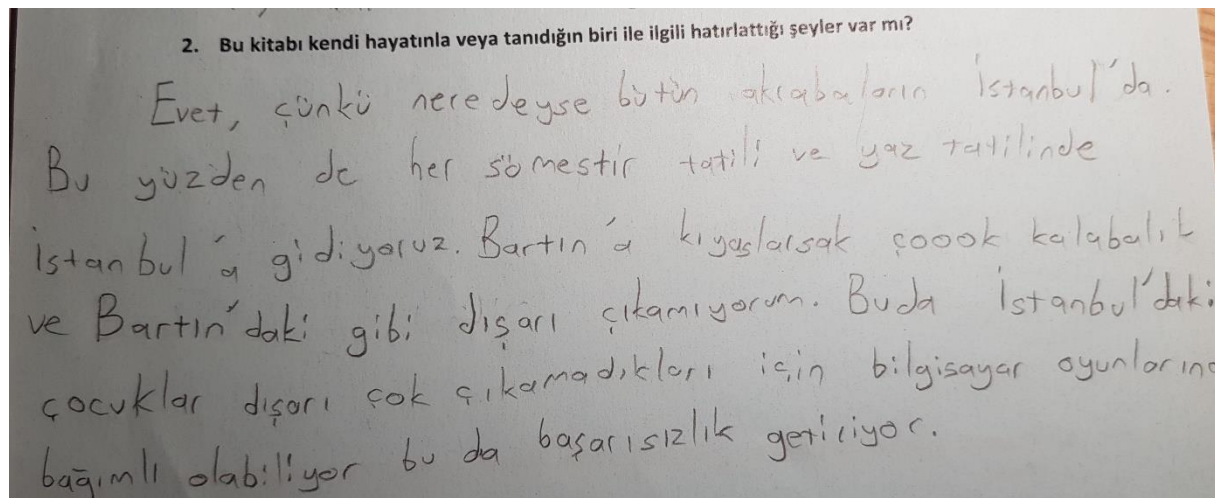 2. Bu kitabı kendi hayatınla veya tanıdığın biri ile ilgili hatırlattığı şeyler var mı?
Evet, çünkü neredeyse bütün akrabaların İstanbul'da.
Bu yüzden de her sömestir tatili ve yaz tatilinde
İstanbul'a gidiyoruz. Bartın'a kıyaslarsak çoook kalabalık
ve Bartın'daki gibi dışarı çıkamıyorum. Buda İstanbul'daki
çocuklar dışarı çok çıkamadıkları için bilgisayar oyunlarına
bağımlı olabiliyor bu da başarısızlık getiriyor.